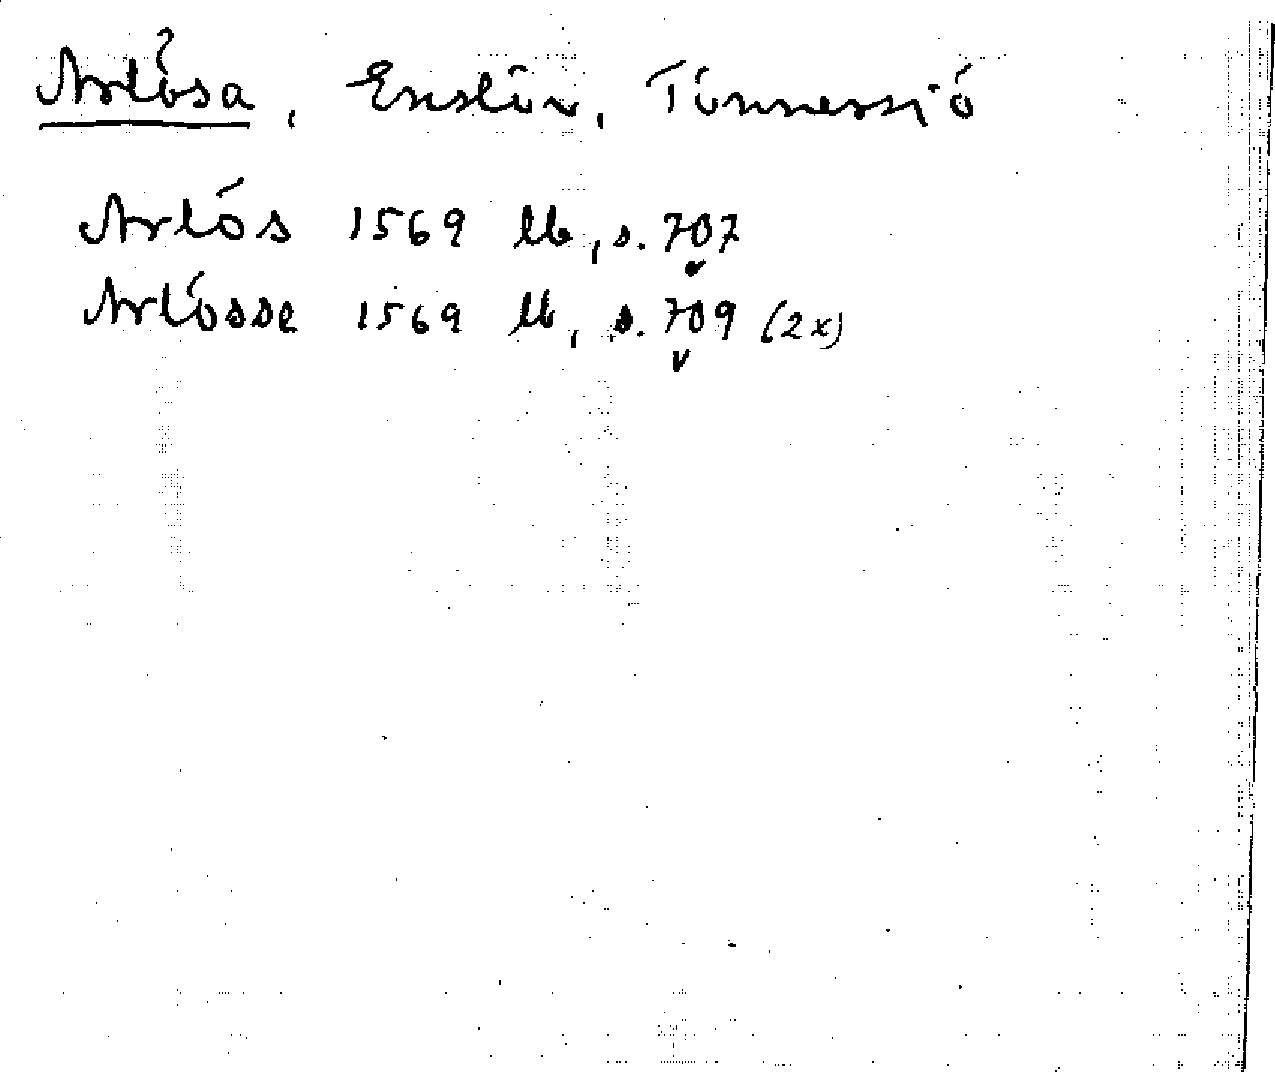 Arlösa, Enslöv, Tönnersjö
Arlös 1569 lb, s. 707
Arlösse 1569 lb, s. 709 (2x)